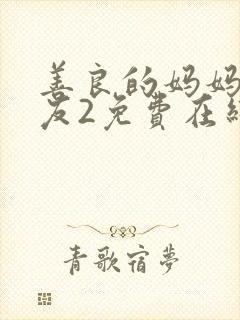 善良的妈妈
友2免費在線
青歌宿夢